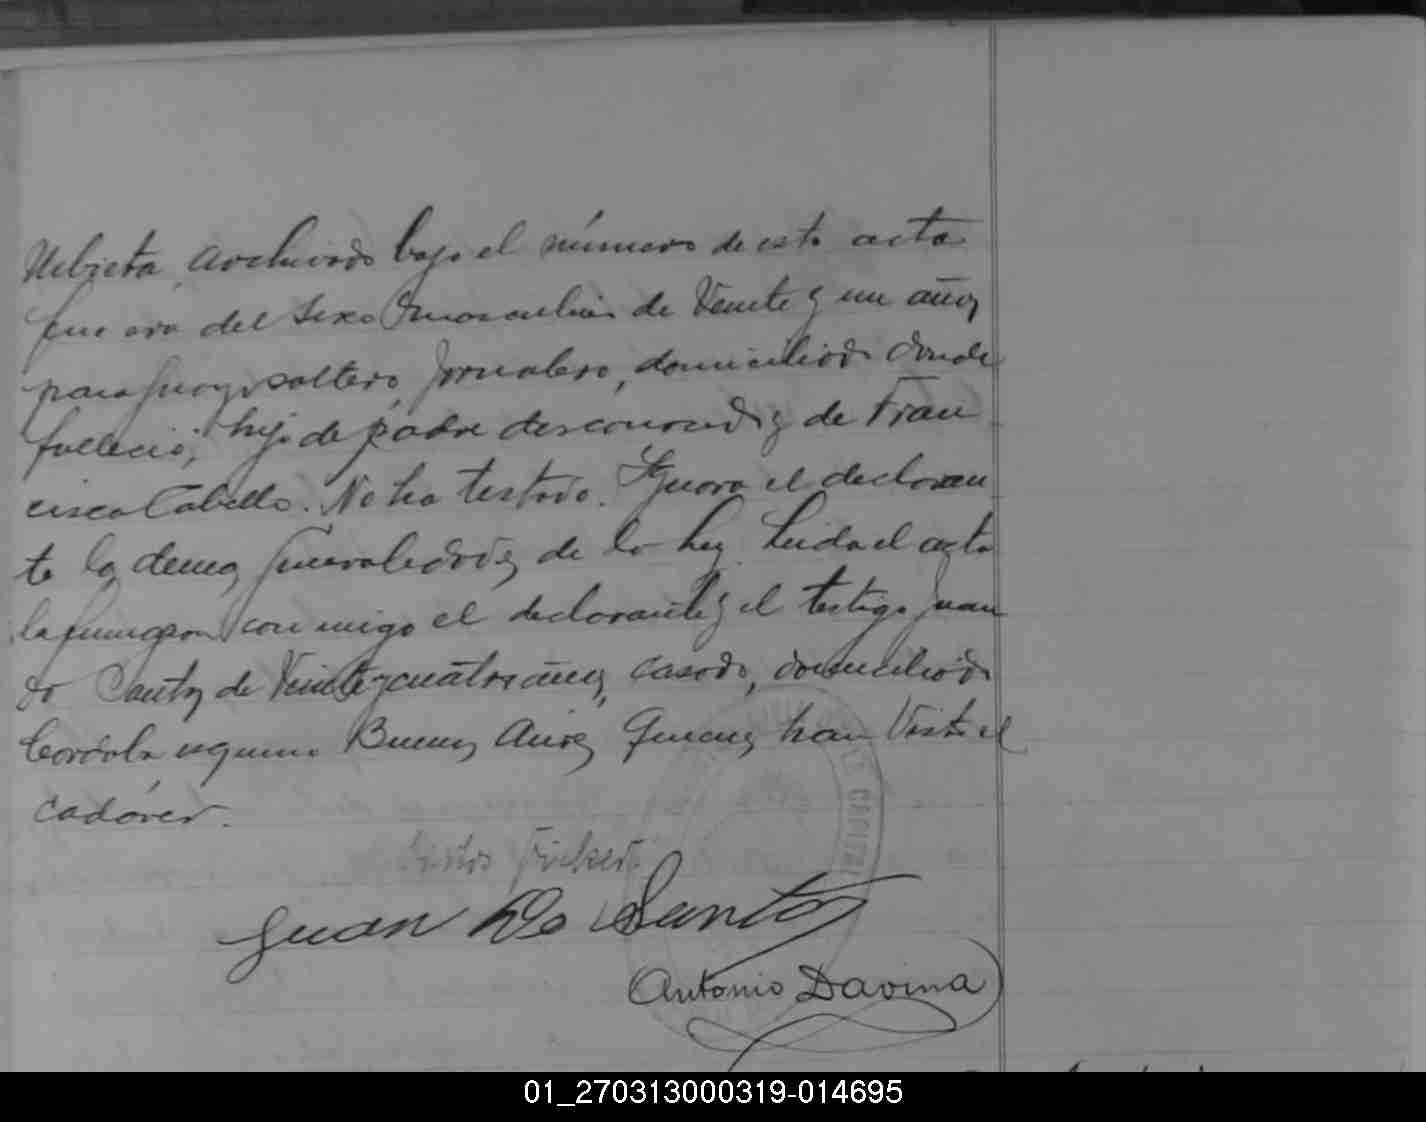 Urbieta, archivado bajo el número de esta acta
que era del sexo masculino de veinte y un años
paraguayo soltero, jornalero, domiciliado donde
falleció; hijo de padre desconocido y de Fran
cisca Cabello. No ha testado. Ignora el declaran
te las demas generalidades de la ley. Leida el acta
la firmaron conmigo el declarante y el testigo Juan
do Santos de veinte y cuatro años, casado, domiciliado
Cordoba esquina Buenos Aires Quienes han visto el
cadáver.
Juan Do Santos
Antonio Davina
CAPITAL
01_270313000319-014695